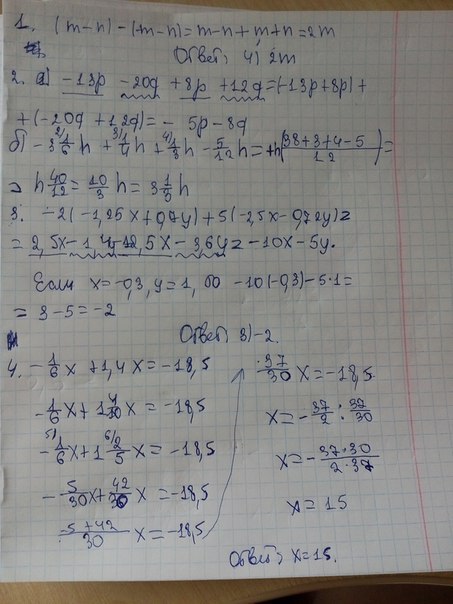 1. (m-n) - (-m-n) = m-n+m+n = 2m
Ответ: 4) 2m
2. а) -13p -20q +8p +12q = (-13p+8p) +
+ (-20q + 12q) = - 5p - 8q
б) -3 1/6 h + 1/4 h + 1/3 h - 5/12 h = +h (38+3+4-5)/12 =
= h 40/12 = 10/3 h = 3 1/3 h
3. -2(-1,25x+0,7y) + 5(-2,5x-0,72y) =
= 2,5x - 1,4y - 12,5x - 3,6y = -10x - 5y.
Если x = -0,3, y = 1, то -10(-0,3) - 5·1 =
= 3 - 5 = -2
Ответ: 3) -2.
4. -1/6 x + 1,4x = -18,5
-1/6 x + 1 4/10 x = -18,5
-1/6 x + 1 2/5 x = -18,5
-5/30 x + 42/30 x = -18,5
(-5+42)/30 x = -18,5
37/30 x = -18,5
x = -37/2 : 37/30
x = -(37·30)/(2·37)
x = 15
Ответ: x = 15.